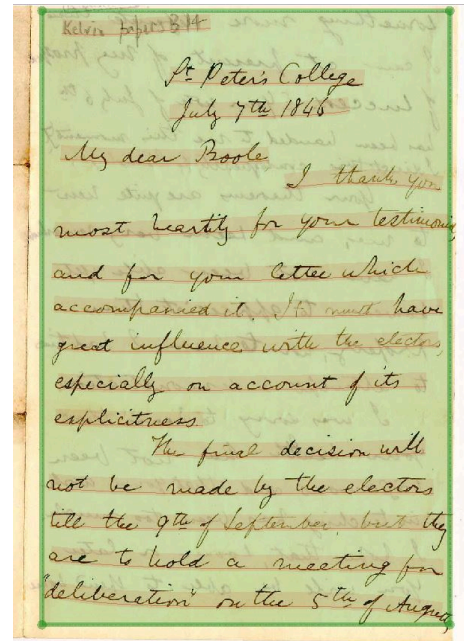 Kelvin papers B 14
St. Peter's College
July 7th 1846
My dear Boole
I thank you
most heartily for your testimonial,
and for your letter which
accompanied it. It must have
great influence with the electors,
especially on account of its
explicitness.
The final decision will
not be made by the electors
till the 9th of September, but they
are to hold a meeting for
"deliberation" on the 5th of August,